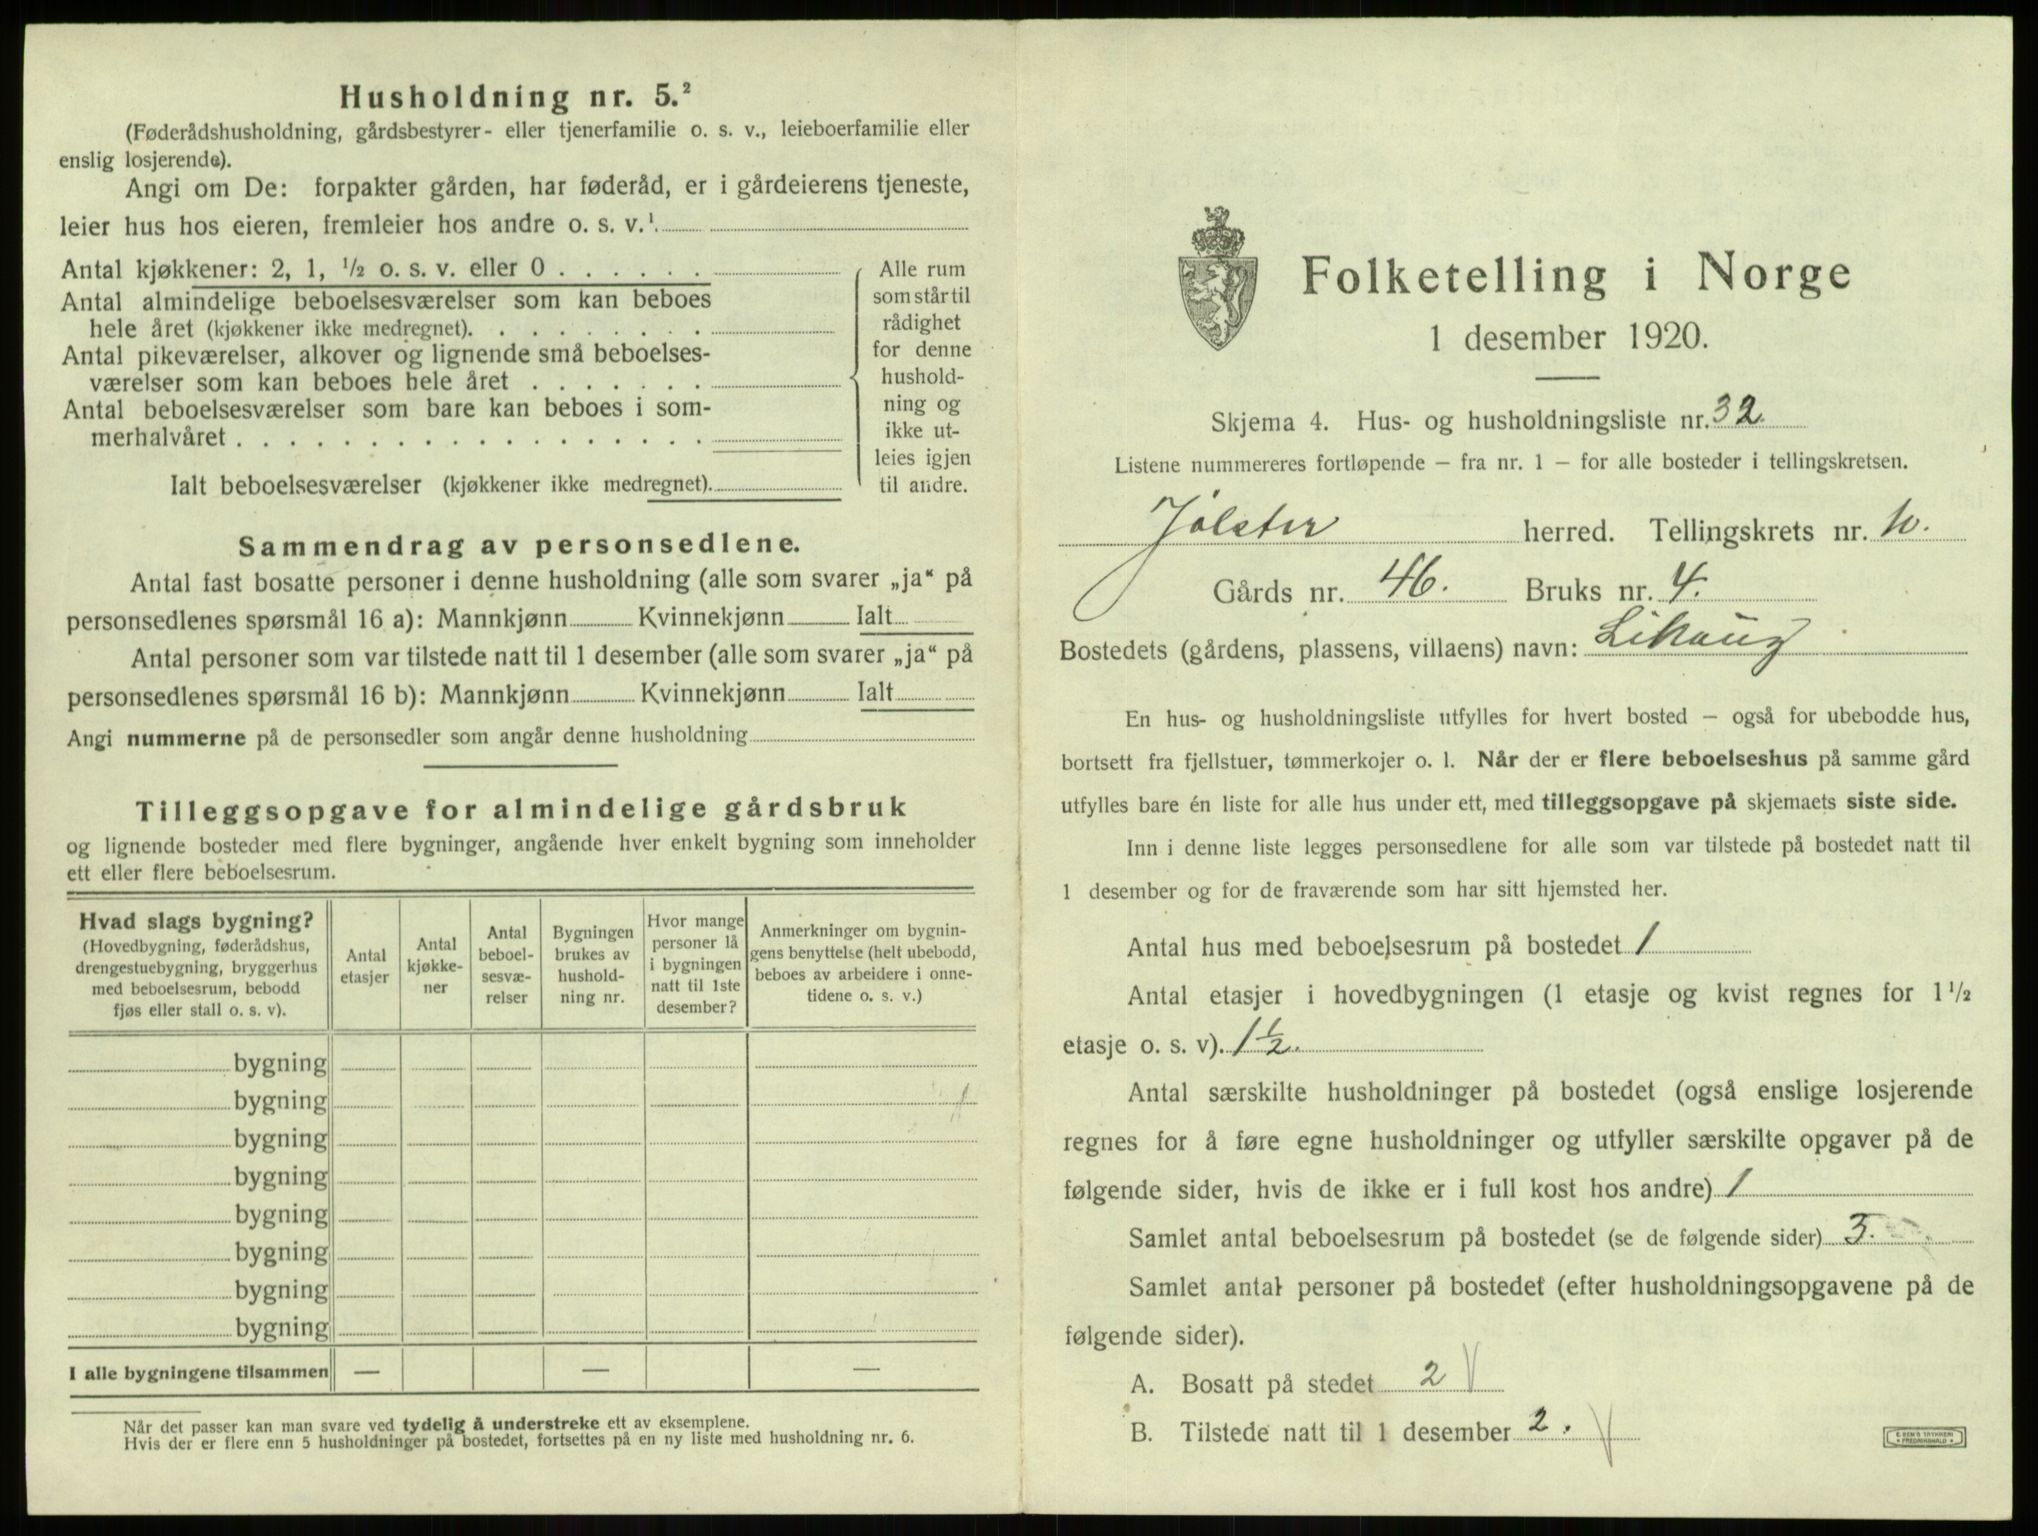 Husholdning nr. 5.²
(Føderådshusholdning, gårdsbestyrer- eller tjenerfamilie o. s. v., leieboerfamilie eller
enslig losjerende).
Angi om De: forpakter gården, har føderåd, er i gårdeierens tjeneste,
leier hus hos eieren, fremleier hos andre o. s. v.¹
Antal kjøkkener: 2, 1, ½ o. s. v. eller 0 . . . . . .
Antal almindelige beboelsesværelser som kan beboes
hele året (kjøkkener ikke medregnet). . . . . . . . .
Antal pikeværelser, alkover og lignende små beboelses-
værelser som kan beboes hele året . . . . . . .
Antal beboelsesværelser som bare kan beboes i som-
merhalvåret . . . . . . . . . . . . . . . . . .
Ialt beboelsesværelser (kjøkkener ikke medregnet).
Alle rum
som står til
rådighet
for denne
hushold-
ning og
ikke ut-
leies igjen
til andre.
Sammendrag av personsedlene.
Antal fast bosatte personer i denne husholdning (alle som svarer „ja“ på
personsedlenes spørsmål 16 a): Mannkjønn Kvinnekjønn Ialt
Antal personer som var tilstede natt til 1 desember (alle som svarer „ja“ på
personsedlenes spørsmål 16 b): Mannkjønn Kvinnekjønn Ialt
Angi nummerne på de personsedler som angår denne husholdning
Tilleggsopgave for almindelige gårdsbruk
og lignende bosteder med flere bygninger, angående hver enkelt bygning som inneholder
ett eller flere beboelsesrum.
Hvad slags bygning?
(Hovedbygning, føderådshus,
drengestuebygning, bryggerhus
med beboelsesrum, bebodd
fjøs eller stall o. s. v).
Antal
etasjer
Antal
kjøkke-
ner
Antal
beboel-
sesvæ-
relser
Bygningen
brukes av
hushold-
ning nr.
Hvor mange
personer lå
i bygningen
natt til 1ste
desember?
Anmerkninger om bygnin-
gens benyttelse (helt ubebodd,
beboes av arbeidere i onne-
tidene o. s. v.)
bygning
bygning
bygning
bygning
bygning
bygning
bygning
bygning
I alle bygningene tilsammen — — —
Når det passer kan man svare ved tydelig å understreke ett av eksemplene.
Hvis der er flere enn 5 husholdninger på bostedet, fortsettes på en ny liste med husholdning nr. 6.
Folketelling i Norge
1 desember 1920.
Skjema 4. Hus- og husholdningsliste nr. 32
Listene nummereres fortløpende – fra nr. 1 – for alle bosteder i tellingskretsen.
Jølster herred. Tellingskrets nr. 10.
Gårds nr. 46. Bruks nr. 4.
Bostedets (gårdens, plassens, villaens) navn: Likaug
En hus- og husholdningsliste utfylles for hvert bosted – også for ubebodde hus,
bortsett fra fjellstuer, tømmerkojer o. l. Når der er flere beboelseshus på samme gård
utfylles bare én liste for alle hus under ett, med tilleggsopgave på skjemaets siste side.
Inn i denne liste legges personsedlene for alle som var tilstede på bostedet natt til
1 desember og for de fraværende som har sitt hjemsted her.
Antal hus med beboelsesrum på bostedet 1
Antal etasjer i hovedbygningen (1 etasje og kvist regnes for 1½
etasje o. s. v). 1½.
Antal særskilte husholdninger på bostedet (også enslige losjerende
regnes for å føre egne husholdninger og utfyller særskilte opgaver på de
følgende sider, hvis de ikke er i full kost hos andre) 1
Samlet antal beboelsesrum på bostedet (se de følgende sider) 3.
Samlet antal personer på bostedet (efter husholdningsopgavene på de
følgende sider).
A. Bosatt på stedet 2
B. Tilstede natt til 1 desember 2.